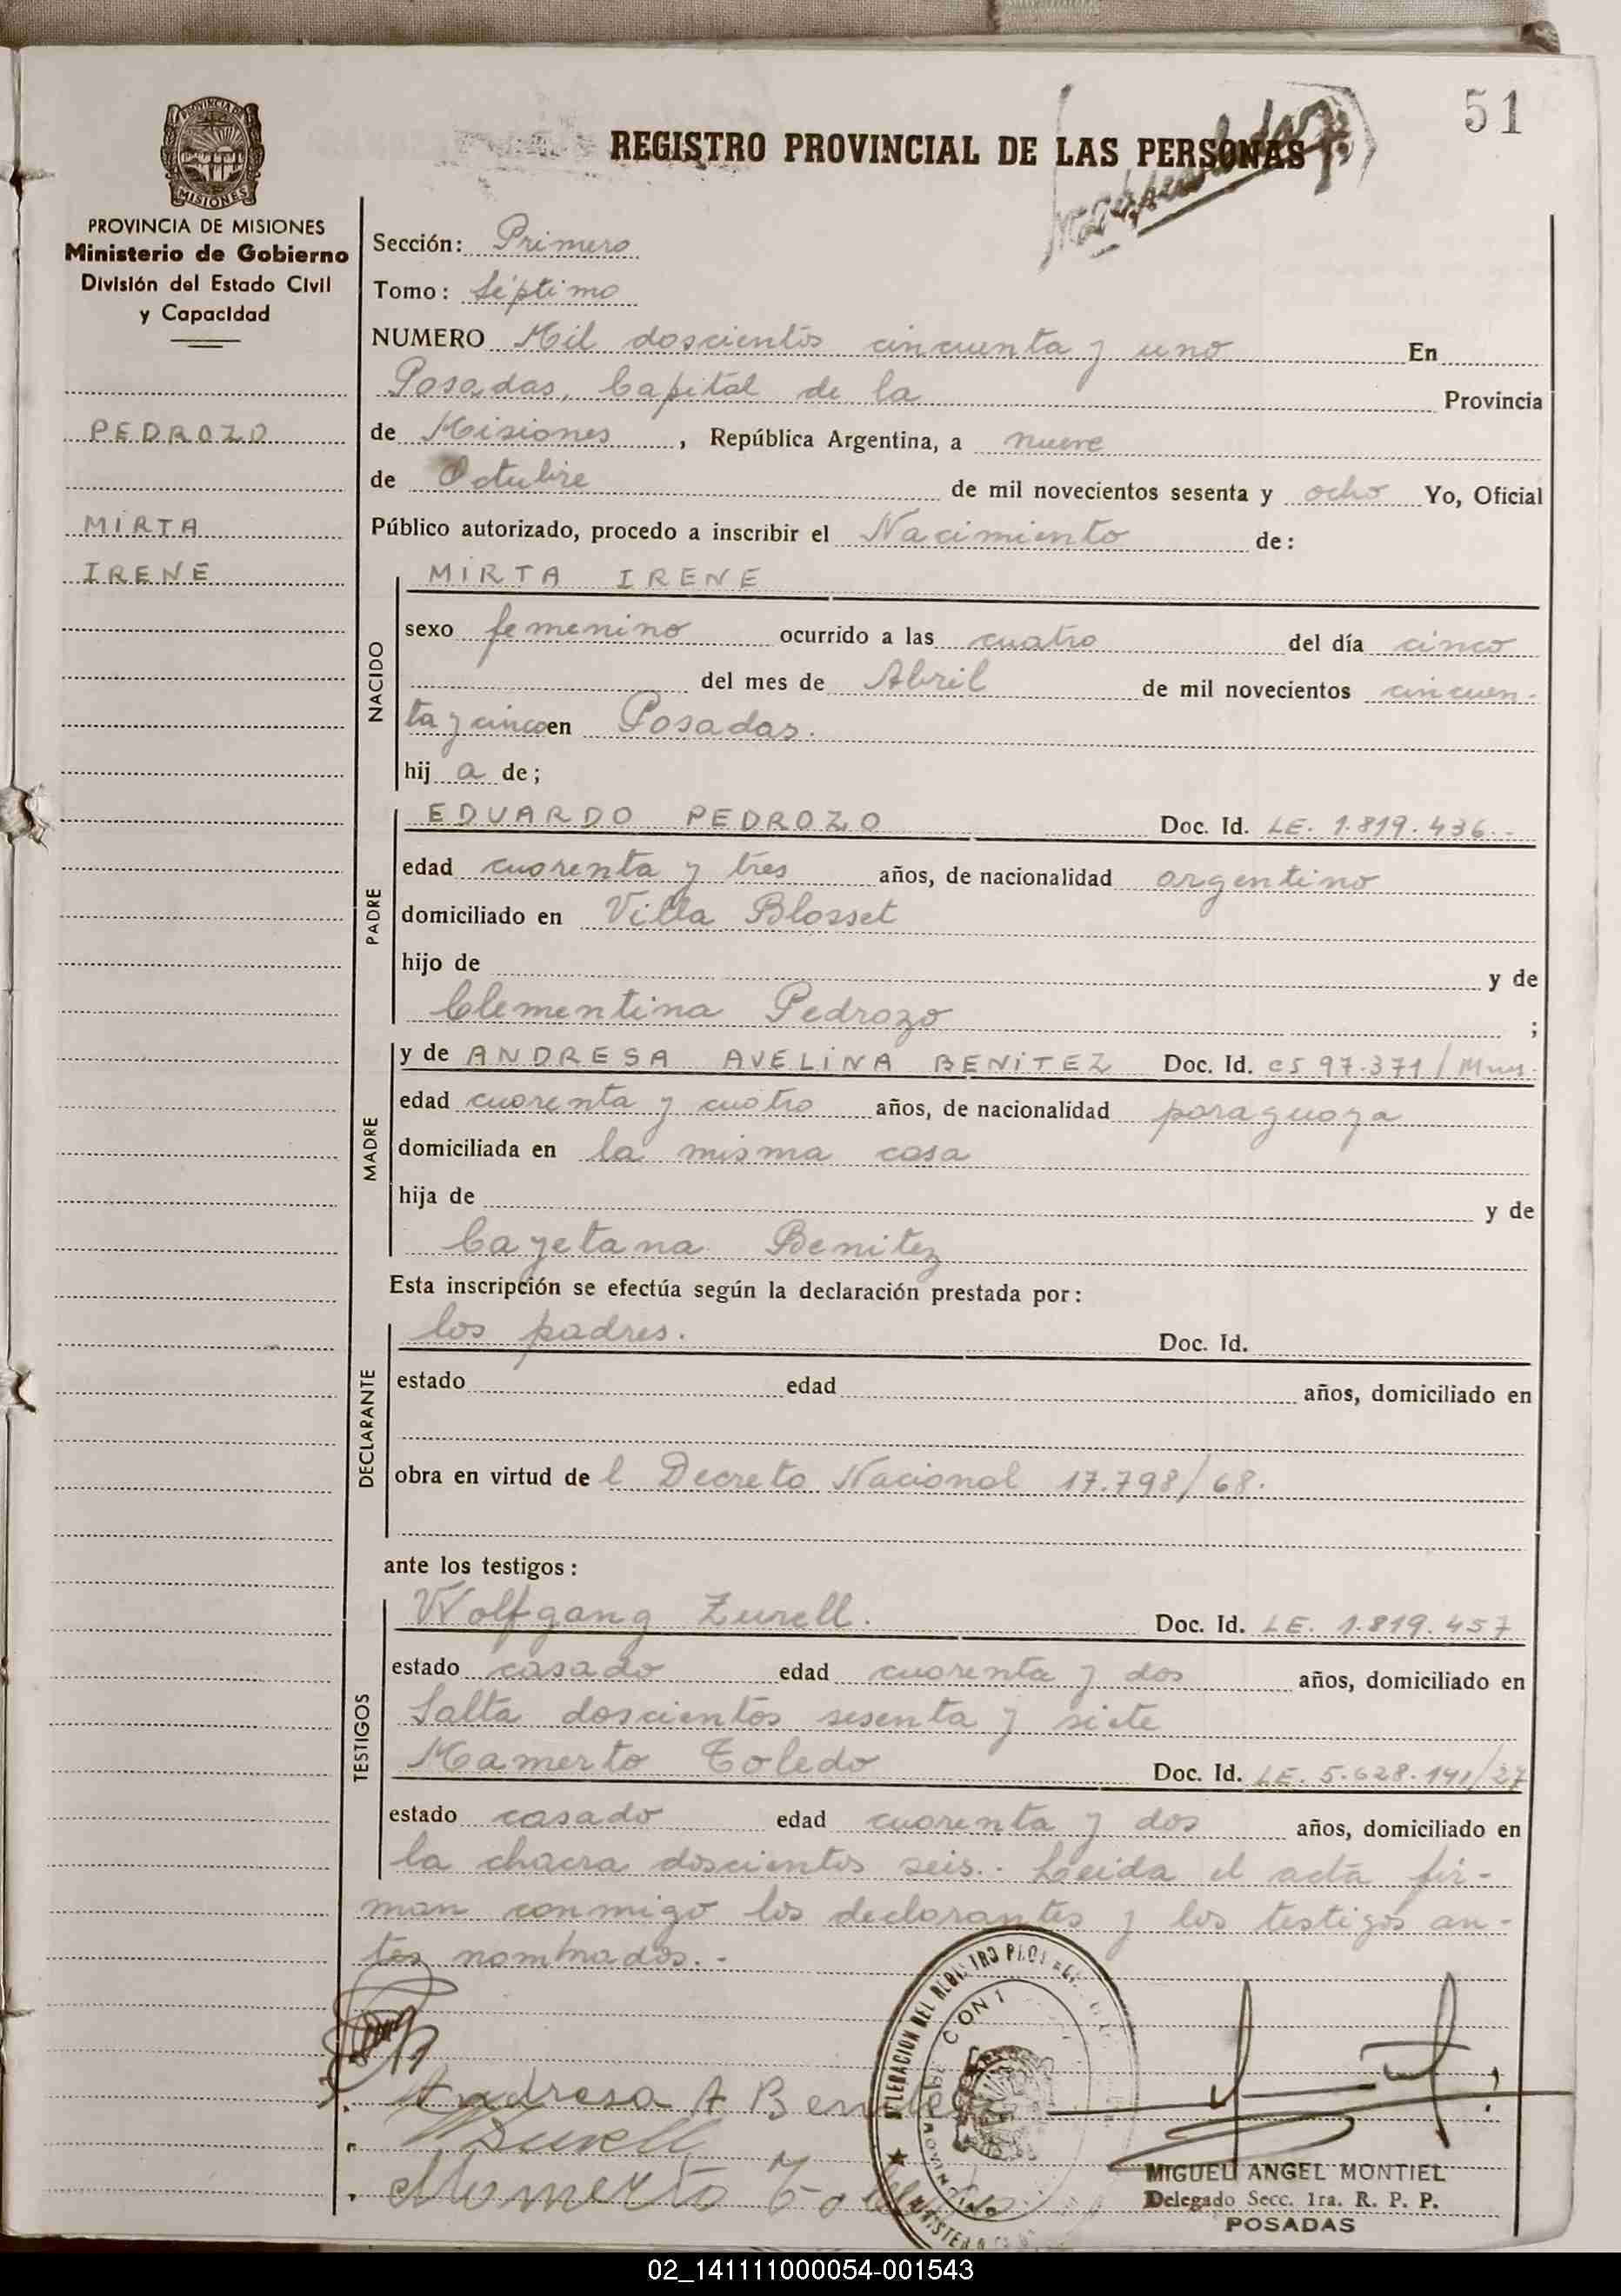 51
REGISTRO PROVINCIAL DE LAS PERSONAS
PROVINCIA DE
MISIONES
PROVINCIA DE MISIONES
Ministerio de Gobierno
División del Estado Civil
y Capacidad
PEDROZO
MIRTA
IRENE
Sección: Primera
Tomo: Séptimo
NUMERO Mil doscientos cincuenta y uno En
Posadas, Capital de la Provincia
de Misiones, República Argentina, a nueve
de Octubre de mil novecientos sesenta y ocho Yo, Oficial
Público autorizado, procedo a inscribir el Nacimiento de:
NACIDO
MIRTA IRENE
sexo femenino ocurrido a las cuatro del día cinco
del mes de Abril de mil novecientos cincuen-
ta y cinco en Posadas.
hij a de;
PADRE
EDUARDO PEDROZO Doc. Id. LE. 1.819.436.-
edad cuarenta y tres años, de nacionalidad argentino
domiciliado en Villa Blosset
hijo de y de
Clementina Pedrozo ;
MADRE
y de ANDRESA AVELINA BENITEZ Doc. Id. CS 97.371/Mnes.
edad cuarenta y cuatro años, de nacionalidad paraguaya
domiciliada en la misma casa
hija de y de
Cayetana Benitez
Esta inscripción se efectúa según la declaración prestada por:
DECLARANTE
los padres. Doc. Id.
estado edad años, domiciliado en
obra en virtud de l Decreto Nacional 17.798/68.
ante los testigos:
TESTIGOS
Wolfgang Zurell. Doc. Id. LE. 1.819.457
estado casado edad cuarenta y dos años, domiciliado en
Salta doscientos sesenta y siete
Mamerto Toledo Doc. Id. LE. 5.628.141/27
estado casado edad cuarenta y dos años, domiciliado en
la chacra doscientos seis.. Leida el acta fir-
man conmigo los declarantes y los testigos an-
tes nombrados.-
Andresa A Benitez
WZurell
Mamerto Toledo
DELEGACION DEL REGISTRO
MIGUEL ANGEL MONTIEL
Delegado Secc. 1ra. R. P. P.
POSADAS
02_141111000054-001543